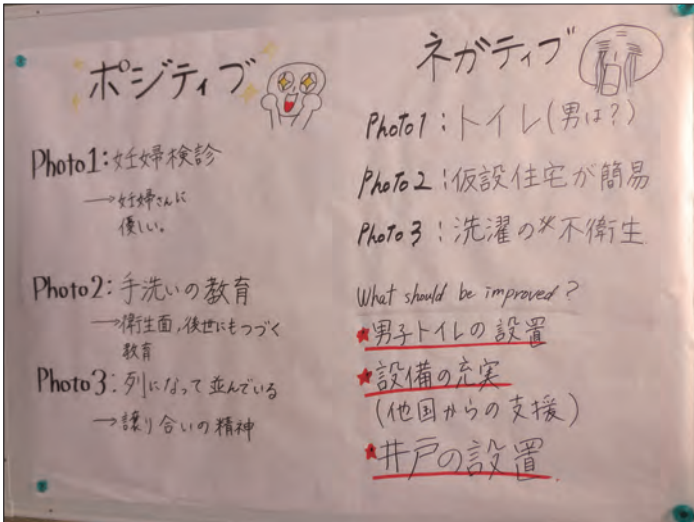 ポジティブ
Photo1:妊婦検診
→妊婦さんに
優しい。
Photo2:手洗いの教育
→衛生面,後世にもつづく
教育
Photo3:列になって並んでいる
→譲り合いの精神
ネガティブ
Photo1:トイレ(男は?)
Photo2:仮設住宅が簡易
Photo3:洗濯の水不衛生
What should be improved?
★男子トイレの設置
★設備の充実
(他国からの支援)
★井戸の設置